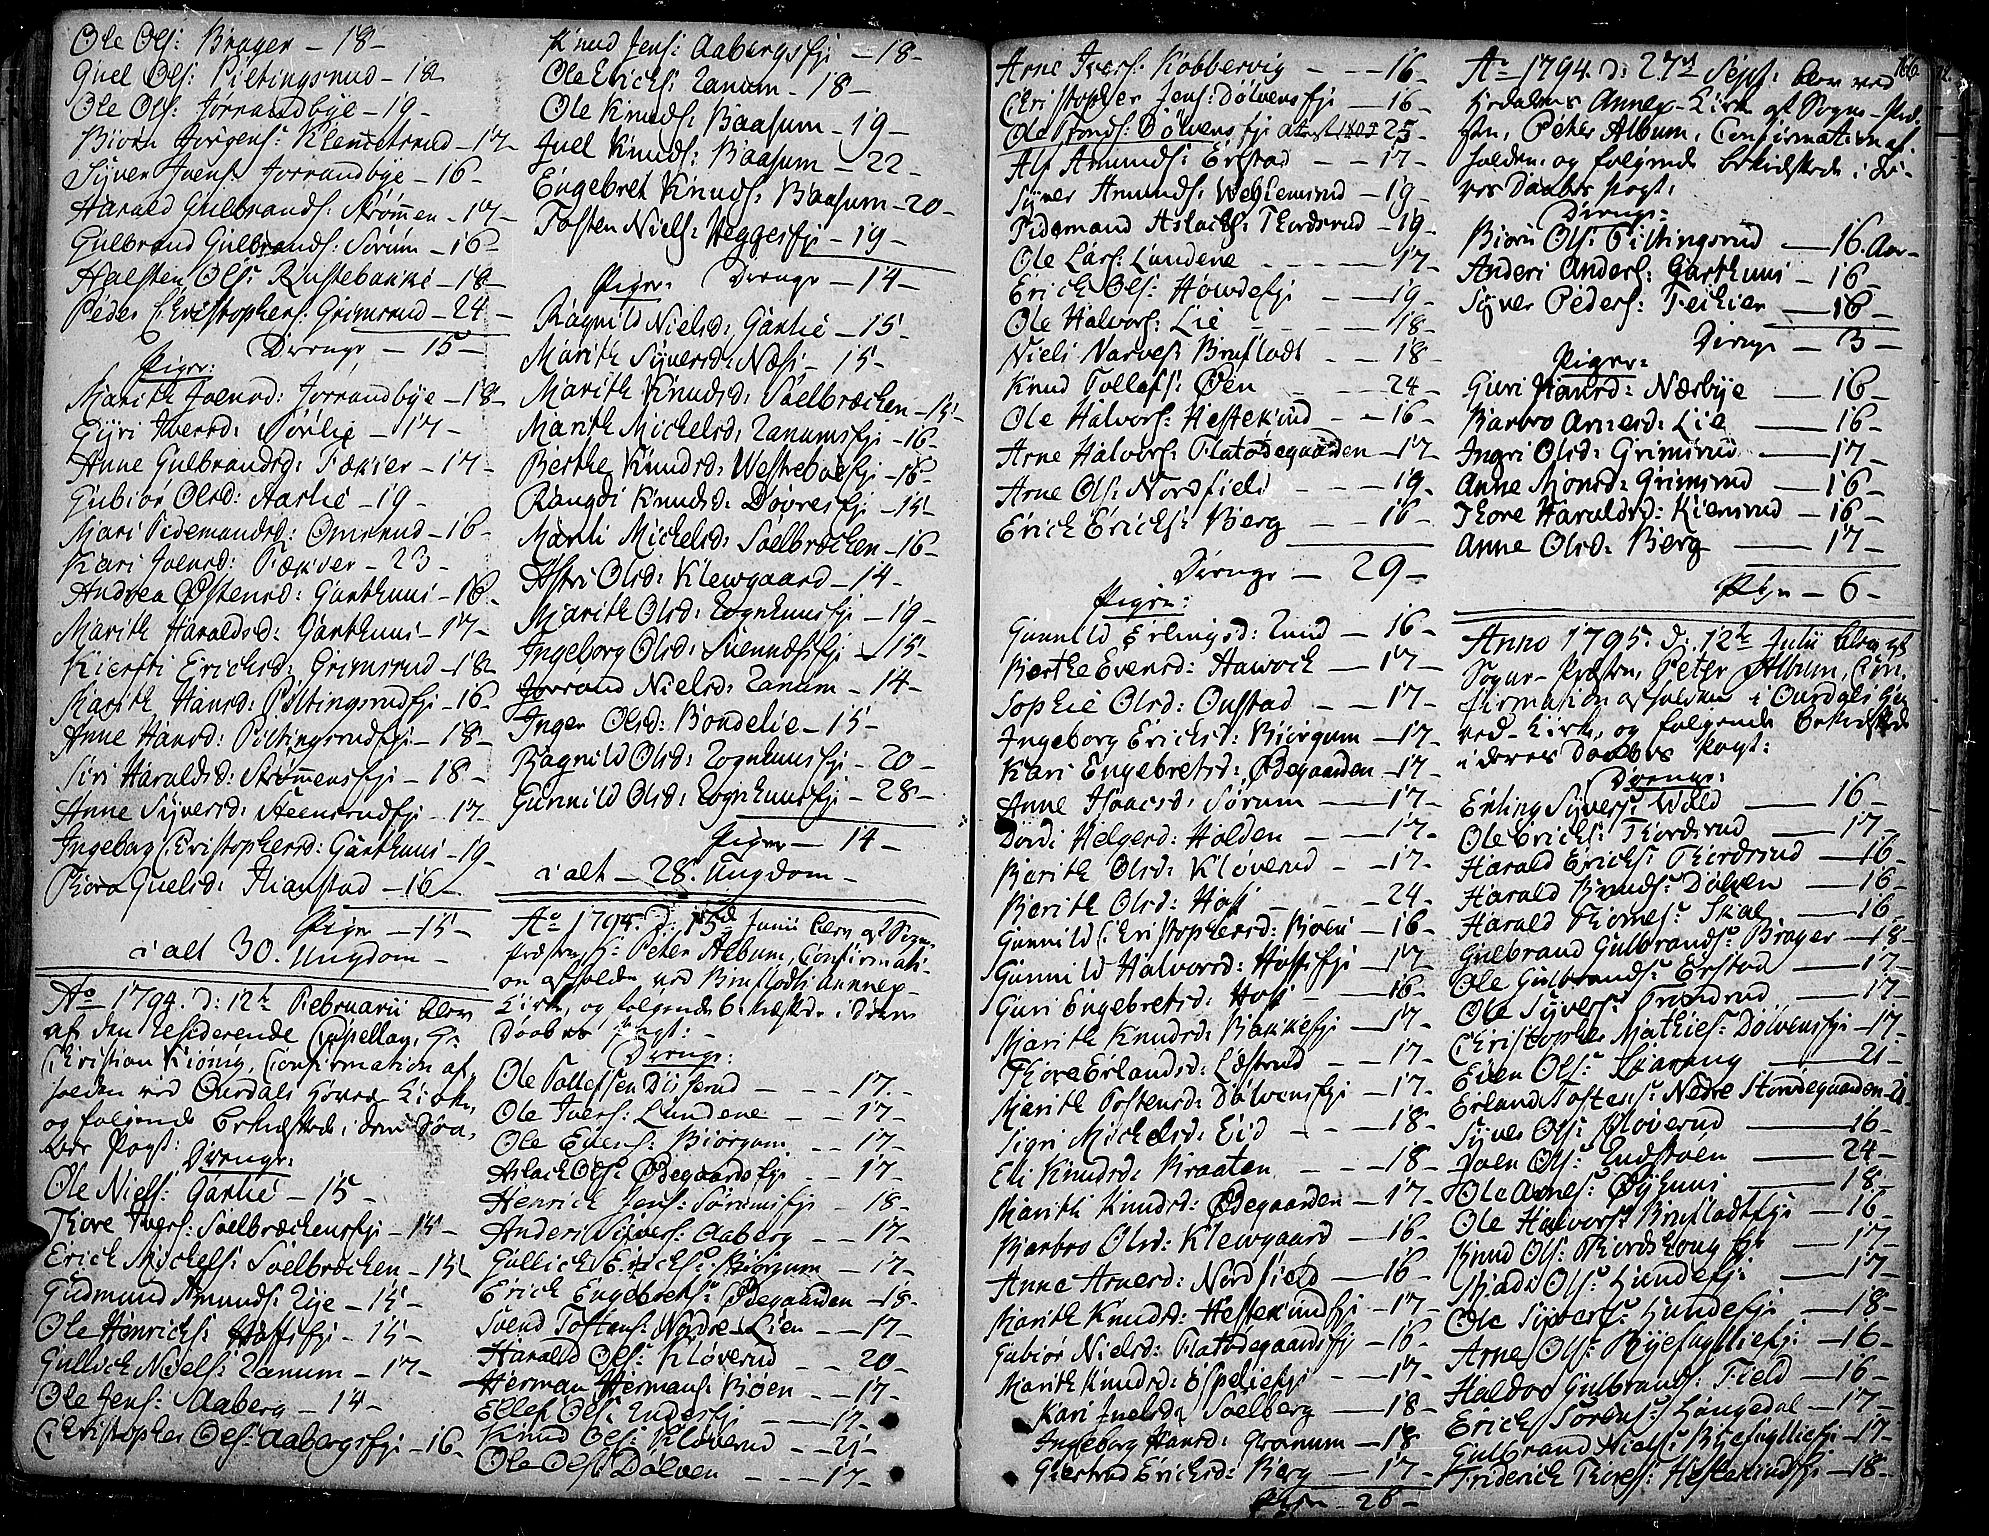 Ole Ols: Brager - 18 -
Guel Ols: Piltingsrud - 18
Ole Ols: Jorrandbye - 19 -
Biörn Jörgens: Klemetsrud - 17 -
Syver Joens: Jorrandbye - 16 -
Harald Gulbrands: Strömmen - 17 -
Gulbrand Gulbrands: Sörum - 16 -
Halsten Ols: Rustebakke - 18 -
Peder Christophers: Grimsrud - 24 -
Drenge - 15 -
Piger:
Marith Joensd: Jorrandbye - 18 -
Gyri Iversd: Sörlie - 17 -
Anne Gulbrandsd: Fækier - 17 -
Gubiör Olsd: Aarlie - 19 -
Mari Tidemandsd: Omsrud - 16 -
Kari Joensd: Fækier - 23 -
Andrea Östensd: Garthuus - 16 -
Marith Haraldsd: Garthuus - 17 -
Kiersti Erichsd: Grimsrud - 18
Marith Hansd: Piltingsrudfj: - 16 -
Anne Hansd: Piltingsrudfj: - 18 -
Siri Haraldsd: Strömmensfj: - 18 -
Anne Syversd: Steensrudfj: - 17 -
Ingebor Christophersd: Garthuus - 19 -
Thora Guelsd: - 16 -
Piger - 15 -
i alt 30. Ungdom -
Ao 1794. D: 12te Februarii blev
af den residerende Capellan, Hr
Christian Kiönig, Confirmation af-
holden ved Ourdals Hoved-Kirke,
og følgende bekræftede i deres Daa-
bes Pagt: Drenge:
Ole Niels: Garlie - 15 -
Thore Ivers: Soelbrechensfj: - 15 -
Erich Michels: Soelbrechen - 15 -
Gudmund Amunds: Rye - 15 -
Ole Henrichs: Hoffsfj: - 15 -
Gullich Niels: Ranum - 17 -
Ole Jens: Aaberg - 14 -
Christopher Ols: Aabergsfj: - 16 -
Knud Jens: Aabergsfj: - 18 -
Ole Erichs: Ranum - 18 -
Ole Knuds: Baasum - 19 -
Juel Knuds: Baasum - 22 -
Engebret Knuds: Baasum - 20 -
Tosten Niels: Heggesfj: - 19 -
Drenge - 14 -
Piger:
Ragnild Nielsd: Garlie - 15 -
Marith Syversd: Næss - 15 -
Marith Knudsd: Soelbrechen - 15 -
Marith Michelsd: Ranumsfj: - 16 -
Berthe Knudsd: Westrebøefj: - 16 -
Rangdi Knudsd: Dövresfj: - 15 -
Marit Michelsd: Soelbrechen - 16 -
Astri Olsd: Klewgaard - 14 -
Marith Olsd: Rognhuusfj: - 19 -
Ingeborg Olsd: Suennesfj: - 15 -
Jorrand Nielsd: Ranum - 14 -
Inger Olsd: Bondelie - 15 -
Ragnild Olsd: Rognhuusfj: - 20 -
Gunnild Olsd: Rognhuusfj: - 28 -
Piger - 14 -
i alt - 28. Ungdom -
Ao 1794. D: 15de Junii blev af Sogne-
præsten, Hr: Peter Album, Confirmati-
on afholden ved Bruflodts Annex-
Kirke, og følgende bekræftede i deres
Daabes Pagt: -
Drenge:
Ole Tollefsen Disserud - - 17. -
Ole Ivers: Lundene - - 17 -
Ole Evens: Biörgum - - 17 -
Aslach Ols: Ödegaardsfj: - - 17 -
Henrich Jens: Sörumsfj: - 18 -
Anders Syvers: Aaberg - - 17 -
Gullich Erichs: Biörgum - 17 -
Erich Engebrets: Ödegaarden - 18 -
Svend Tostens: Nordre-Lien - - 17 -
Harald Ols: Klöverud - - 20 -
Herman Hermans: Biöen - - 17 -
Ellef Ols: - - 17 -
Knud Ols: Klöverud - - 21 -
Ole Ols: Dölven - - - 17 -
Arne Ivers: Kobbervig - - - 16 -
Christopher Jens: Dölvensfj: - 16 -
Ole Tronds: Dölvensfj: 25 -
Alf Amunds: Erstad - - 17 -
Syver Amunds: Wehlemsrud - 19 -
Tidemand Aslachs: Thordsrud - 19 -
Ole Lars: Lundene - - - - 17 -
Erich Ols: Howdefj: - - 19 -
Ole Halvors: Lie - - - - 18 -
Niels Narves: Bruflodt - - 18 -
Knud Tollefs: Öen - - 24 -
Ole Halvors: Hestekind - - 16 -
Arne Halvors: Flatödegaarden - 17 -
Arne Ols: Nordfield - - - 19 -
Erich Erichs: Berg - - 16 -
Drenge - 29 -
Piger:
Gunnild Erlingsd: Rund - 16 -
Berthe Evensd: Hawich - 17 -
Sophie Olsd: Onstad - - 17 -
Ingeborg Erichsd: Biörgum - 17 -
Kari Engebretsd: Ödegaarden - 17 -
Anne Isaacsd: Sörum - - 17 -
Dordi Helgesd: Holden - - 17 -
Berith Olsd: Klöverud - - 17 -
Berith Olsd: Hoff - - - - 24 -
Gunnild Christophersd: Boen - 16 -
Gunnild Halvorsd: Hoffsfj: - 17 -
Guri Engebretsd: Hoff - - 16 -
Marith Knudsd: Backefj: - 17 -
Thore Erlandsd: Lestrud - - 17 -
Marith Tostensd: Dölvensfj: - 17 -
Sigri Michelsd: Eid - - - - 18 -
Eli Knudsd: Braaten - - - 18 -
Marith Knudsd: Ödegaarden - 17 -
Barbro Olsd: Klewgaard - 16 -
Anne Arnesd: Nordfield - 16 -
Marith Knudsd: Hestekindfj: - 17 -
Gubiör Nielsd: Flatödegaardsfj: - 16 -
Marith Knudsd: Espeliefj: - 17 -
Kari Juelsd: Soelberg - 18 -
Ingeborg Hansd: Gronum - 18
Giertrud Erichsd: Berg - 17 -
Piger - 26 -
166
Ao 1794. D: 27de Sept: blev ved
Hedalens Annex-Kirke af Sogne-Præ-
sten, Peter Album, Confirmation af-
holden, og følgende bekræftede i de-
res Daabes Pagt:
Drenge:
Biörn Ols: Piltingsrud - 16. Aar -
Anders Anders: Garthuus - 16 -
Syver Peders: Feikier - 16 -
Drenge - 3 -
Piger:
Guri Hansd: Næsbye - 16 -
Barbro Arnesd: Lie - 16 -
Ingri Olsd: Grimsrud - 17 -
Anne Monsd: Grimsrud - 16 -
Thore Haraldsd: Kiensrud - 16 -
Anne Olsd: Berg - 17 -
Piger - 6 -
Anno 1795. D: 12te Julii blev af
Sogne-Præsten, Peter Album, Con-
firmation afholden i Ourdals Ho-
ved-Kirke, og følgende bekræftede
i deres Daabes Pagt:
Drenge:
Erling Syvers: Wold - 16 -
Ole Erichs: Thordsrud - 17 -
Harald Erichs: Thordsrud - 16 -
Harald Knuds: Dölven - 16 -
Harald Thomes: Skal - 16 -
Gulbrand Gulbrands: Brager - 18 -
Ole Gulbrands: Erstad - 17 -
Ole Syvers: Trondrud - 17 -
Christopher Mathies: Dölvensfj: - 17 -
Even Ols: - 21 -
Erland Tostens: Nedre Storødegaarden - 21 -
Syver Ols: Klöverud - 16 -
Joen Ols: - 24 -
Ole Arnes: Öyhuus - 18 -
Ole Halvors: Bruflodtfj: - 16 -
Knud Ols: - 17 -
Ols: Lundefj: - 17 -
Ole Syvers: Lundefj: - 18 -
Arne Ols: - 16 -
Haldor Gulbrands: Field - 16 -
Erich Sörens: Langedal - 17 -
Gulbrand Niels: - 17 -
Friderich Thores: Hestekindfj: - 18 -